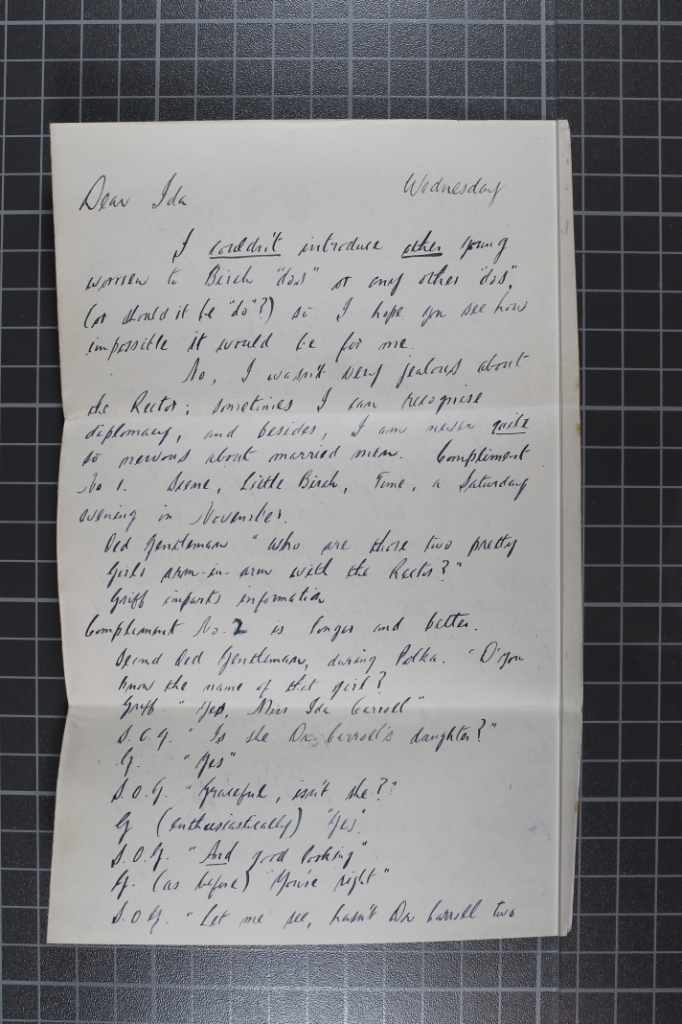 Dear Ida Wednesday
I couldn't introduce other young
women to Birch "do's" or any other "do's",
(or should it be "do"?) so I hope you see how
impossible it would be for me.
No, I wasn't very jealous about
the Rector; sometimes I can recognise
diplomacy, and besides, I am never quite
so nervous about married men. Compliment
No 1. Scene, Little Birch, Time, a Saturday
evening in November.
Old Gentleman "Who are those two pretty
Girls arm-in-arm with the Rector?"
Griff imparts information
Compliment No. 2 is longer and better.
Second Old Gentleman, during Polka. "D'you
know the name of that girl?
Griff. "Yes, Miss Ida Carroll"
S.O.G. "Is she Dr. Carroll's daughter?"
G. "Yes"
S.O.G. "Graceful, isn't she?"
G (enthusiastically) "Yes".
S.O.G. "And good looking"
G. (as before) "You're right"
S.O.G. "Let me see, hasn't Dr Carroll two